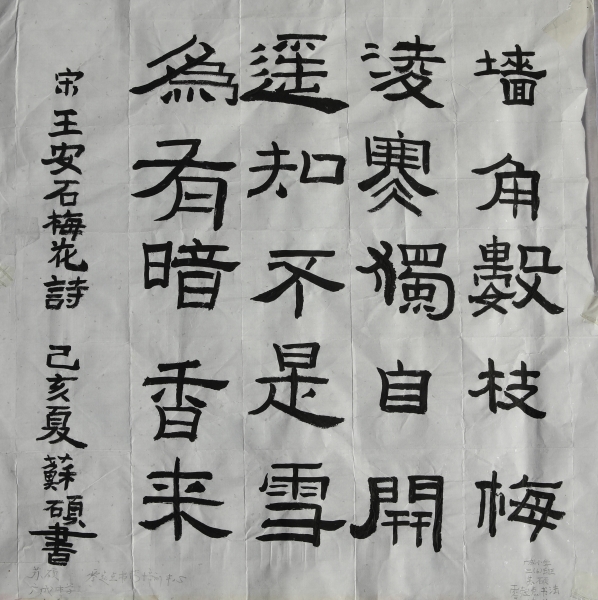 墻角數枝梅
淩寒獨自開
遥知不是雪
為有暗香来
宋王安石梅花詩 己亥夏蘇碩書